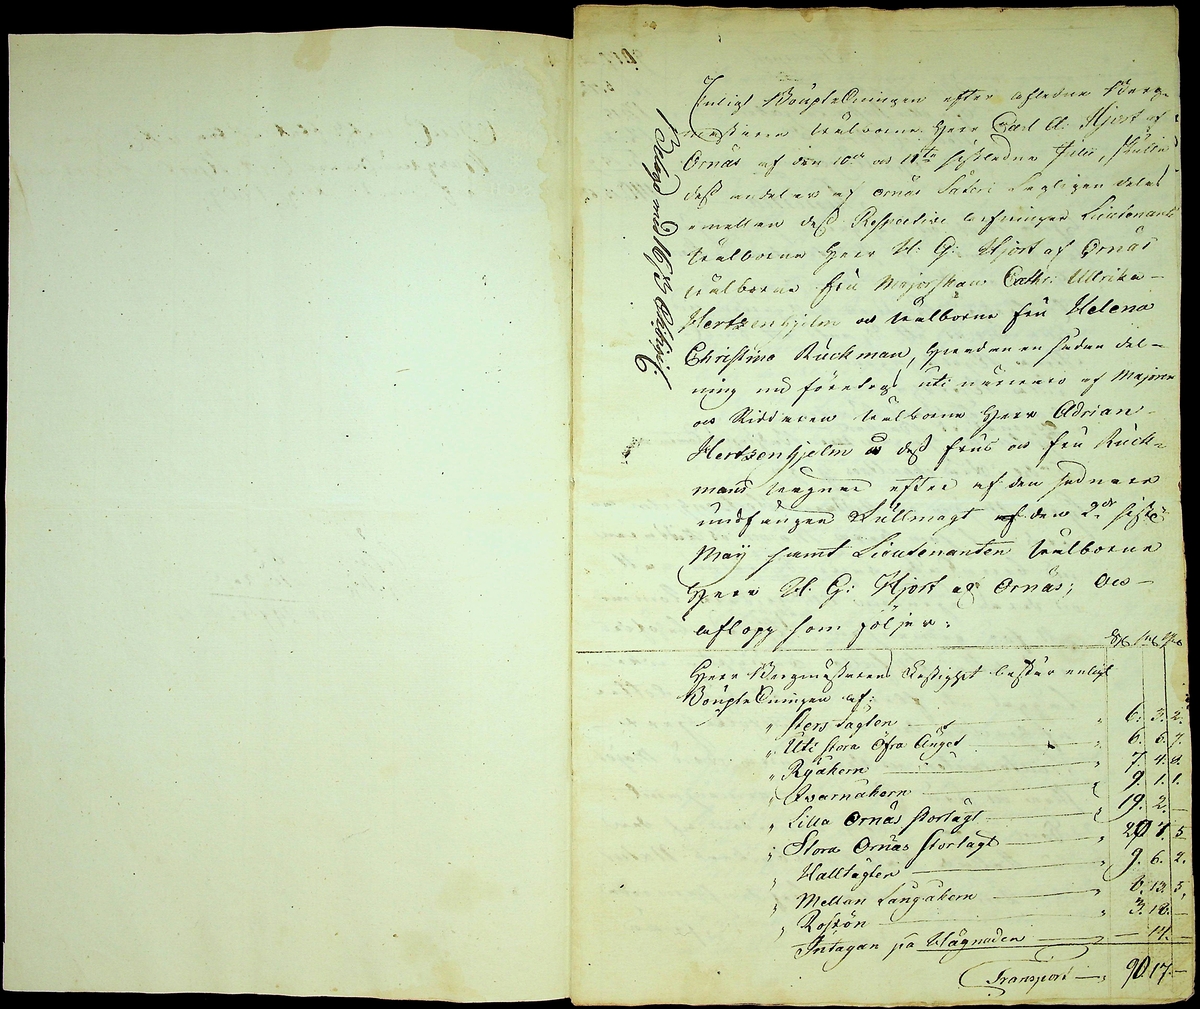 Enligt Bouptekningen efter afledne Berg-
mästaren wälborne Herr Carl A: Hjort af
Ornäs af den 10de och 11te sistledne Julii, skulle
dess andel er af Ornäs Säteri Lagligen delas
emellan dess Respective arfvingar Lieutenants
wälborne Herr U: G: Hjort af Ornäs
wälborne fru Majorskan Cathr: Ullrika
Hertzenhjelm och wälborne fru Helena
Christina Ruckman, hvadan en sådan del-
ning nu företogs uti närvaro af Majoren
och Riddaren wälborne Herr Adrian
Hertzenhjelm och dess frus och fru Ruck-
mans wägnar efter af den sednare
undfangen Fullmagt af den 2de siste
May samt Lieutenanten wälborne
Herr U: G: Hjort af Ornäs; och
aflopp som följer:
Herr Bergmästarens består enligt
Bouptekningen af:
" Sterstägten " 6. 3. 2.
" Uti Stora Öfra Änget " 6. 6. 7.
" Ryåkern " 7. 4. 8.
" Qvarnåkern " 9. 1. 1.
" Lilla Ornäs Stortägt " 19. 2. —
" Stora Ornäs Stortägt " 7. 5
" Halltägten " 9. 6. 2.
" Mellan Långåkern " 6. 13. 5.
" Rossön " 3. 18. —
Intagan på Hägnaden — 14. —
Transport " 90. 17. —